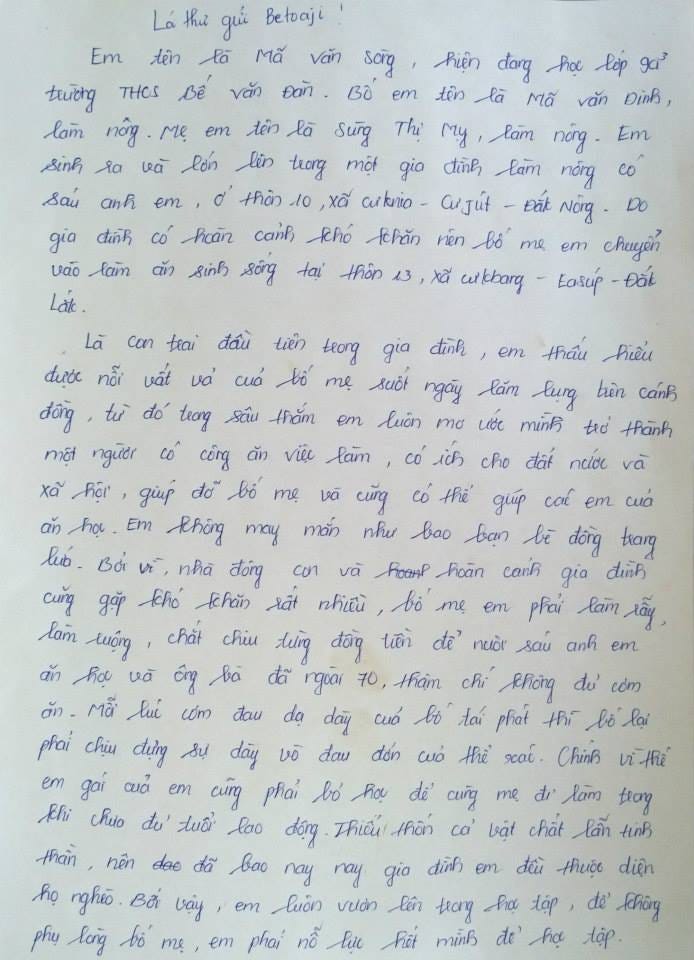 Lá thư gửi Betoaji !
Em tên là Mã Văn Sòng, hiện đang học lớp 9a3
trường THCS Bế Văn Đàn. Bố em tên là Mã Văn Dinh,
làm nông. Mẹ em tên là Sùng Thị Mỵ, làm nông. Em
sinh ra và lớn lên trong một gia đình làm nông có
sáu anh em, ở thôn 10, xã cưknia - Cư Jút - Đắk Nông. Do
gia đình có hoàn cảnh khó khăn nên bố mẹ em chuyển
vào làm ăn sinh sống tại thôn 13, xã cưkbang - Easúp - Đắk
Lắk.
Là con trai đầu tiên trong gia đình, em thấu hiểu
được nỗi vất vả của bố mẹ suốt ngày lam lung trên cánh
đồng, từ đó trong sâu thẳm em luôn mơ ước mình trở thành
một người có công ăn việc làm, có ích cho đất nước và
xã hội, giúp đỡ bố mẹ và cũng có thể giúp các em của
ăn học. Em không may mắn như bao bạn bè đồng trang
lứa. Bởi vì, nhà đông con và hoàn cảnh gia đình
cũng gặp khó khăn rất nhiều, bố mẹ em phải làm rẫy,
làm ruộng, chắt chiu từng đồng tiền để nuôi sáu anh em
ăn học và ông bà đã ngoài 70, thậm chí không đủ cơm
ăn. Mỗi lúc cơm đau dạ dày của bố tái phát thì bố lại
phải chịu đựng sự dày vò đau đớn của thể xác. Chính vì thế
em gái của em cũng phải bỏ học để cùng mẹ đi làm trong
khi chưa đủ tuổi lao động. Thiếu thốn cả vật chất lẫn tinh
thần, nên đã bao nay nay gia đình em đều thuộc diện
họ nghèo. Bởi vậy, em luôn vươn lên trong học tập, để không
phụ lòng bố mẹ, em phải nỗ lực hết mình để học tập.